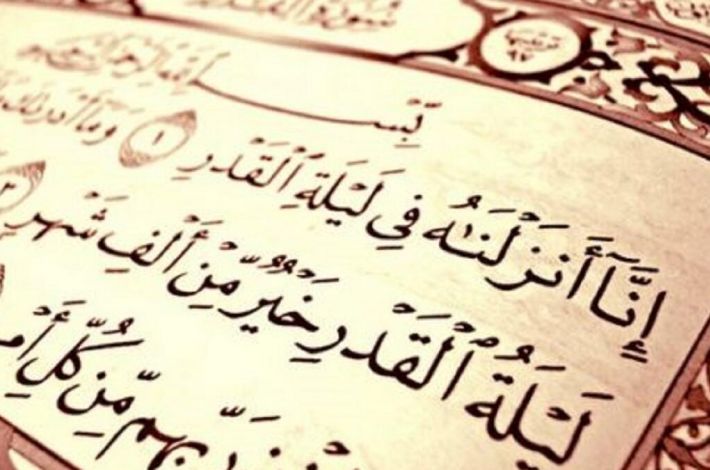 سُورَةُ الْقَدْرِ
بِسْمِ اللَّهِ الرَّحْمَٰنِ الرَّحِيمِ
إِنَّآ أَنزَلْنَٰهُ فِى لَيْلَةِ ٱلْقَدْرِ ١ وَمَآ أَدْرَىٰكَ
لَيْلَةُ ٱلْقَدْرِ خَيْرٌ مِّنْ أَلْفِ شَهْرٍ ٣
رَبِّهِم مِّن كُلِّ أَمْ